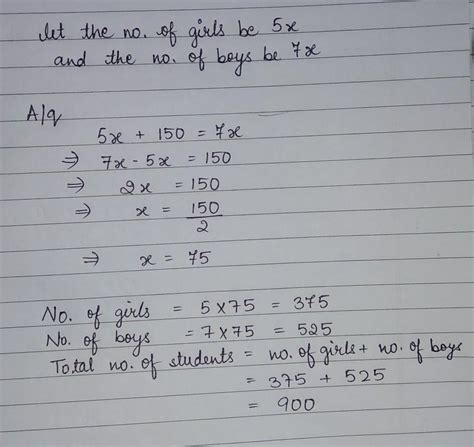 let the no. of girls be 5x
and the no. of boys be 7x
A/q
5x + 150 = 7x
⇒ 7x - 5x = 150
⇒ 2x = 150
⇒ x = 150/2
⇒ x = 75
No. of girls = 5×75 = 375
No. of boys = 7×75 = 525
Total no. of students = no. of girls + no. of boys
= 375 + 525
= 900